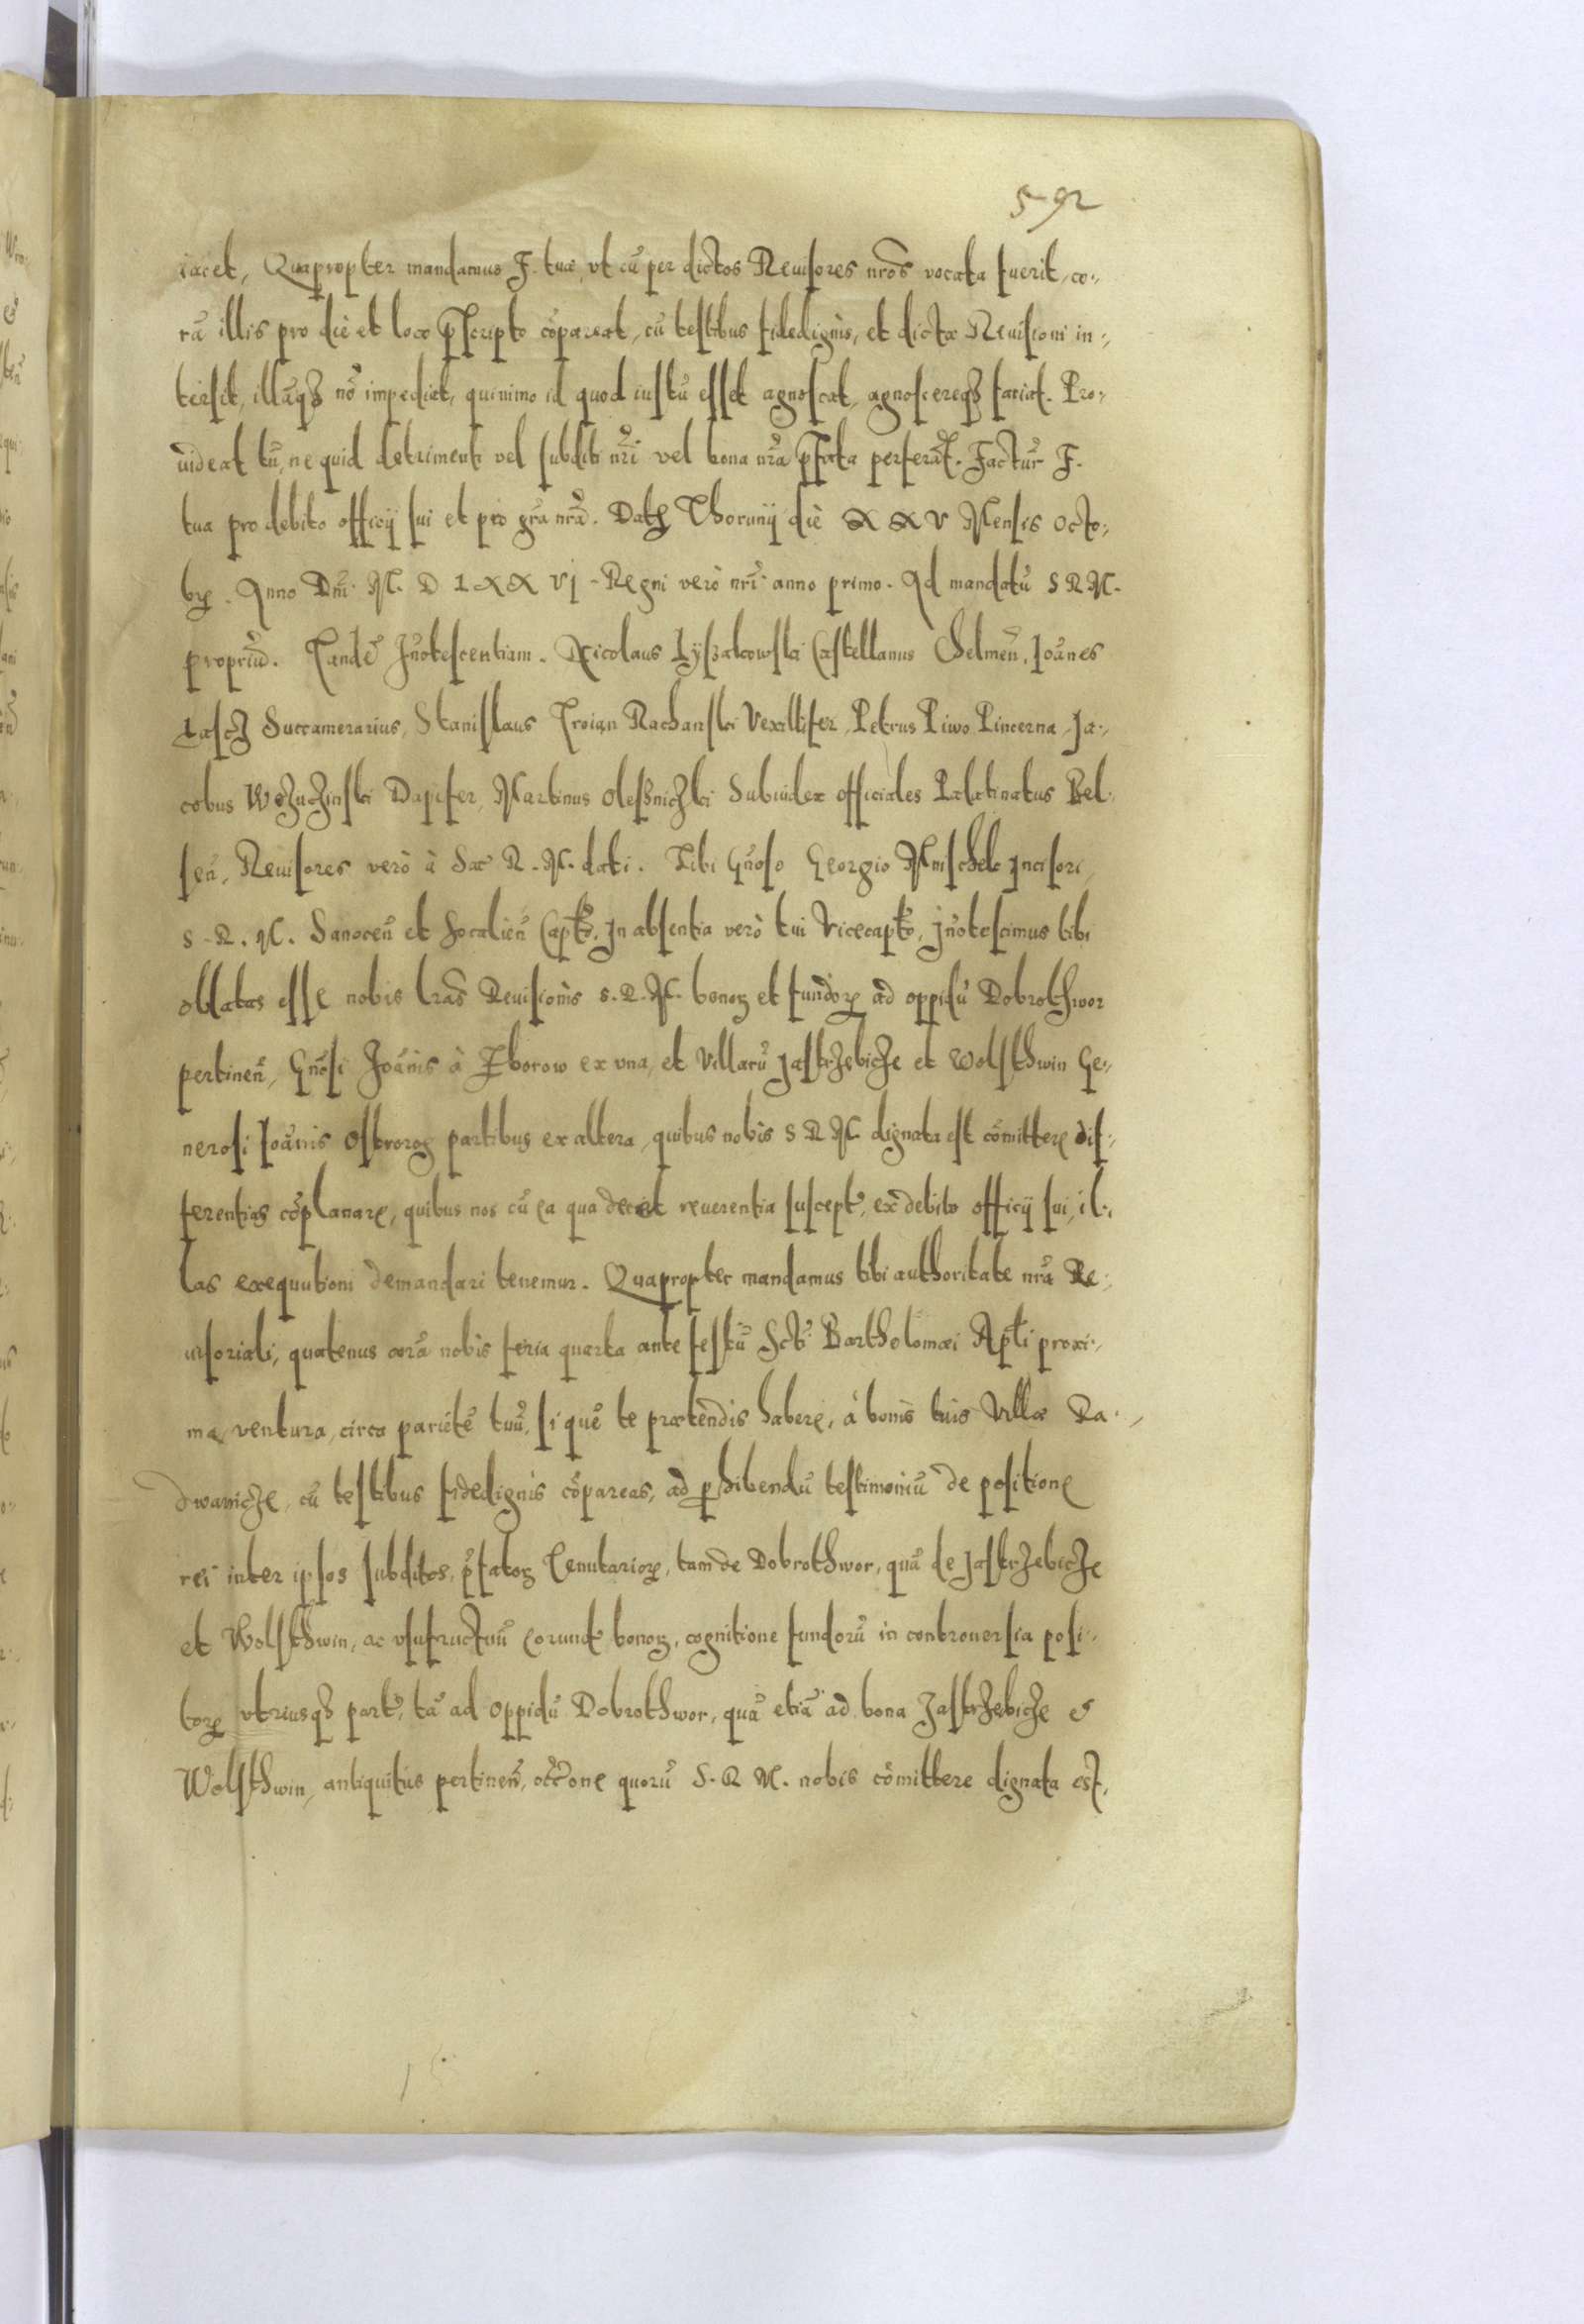 592
iacet, Quapropter mandamus F. tuæ, vt cū per dictos Reuisores nr̄os vocata fuerit, co-
rā illis pro die et loco p̱scripto cōpareat, cū testibus fidedignis, et dictæ Reuisioni in-
tersit, illāqȝ nō impediat, quinimo id quod iustū esset agnoscat, agnoscereqȝ faciat. Pro-
uideat tū, ne quid detrimenti vel subditi nr̄i vel bona nr̄a p̱fata perferāt. Factur̄ F.
tua pro debito officij sui et pro gr̄a nr̄a. Datꝝ Thorunij die XXV Mensis Octo-
brꝭ. Anno Dnī. M. D LXXVj. Regni verò nr̄i anno primo. Ad mandatū S R M.
propriū. Tandē Jn̄otescentiam. Nicolaus Lyszakowski Castellanus Chelmen̄, Ioānes
Łasch Succamerarius, Stanislaus Troian Rachanski Vexillifer, Petrus Piwo Pincerna, Ja-
cobus Dapifer, Martinus Olessniczki Subiudex officiales Palatinatus Bel-
sen̄, Reuisores verò à Sac R. M. dati. Tibi Gn̄oso Georgio Mnischek Jncisori
S. R. M. Sanocen̄ et Socalien̄ Capt̄o, Jn absentia verò tui Vicecapt̄o, jn̄otescimus tibi
oblatas esse nobis lr̄as Reuisionis S. R. M. bonoꝝ et fundoꝝ ad oppidū Dobrothwor
pertinen̄, Gn̄osi Joānis à Zborow ex vna, et Villarū Jastrzebicze et Wolsthwin Ge-
nerosi Ioānis Ostrorog partibus ex altera, quibus nobis S R M dignata est cōmittere dif-
ferentias cōplanare, quibus nos cū ea qua decet reuerentia suscept̄, ex debito officij sui, il-
las exequutioni demandari tenemur. Quapropter mandamus tibi authoritate nr̄a Re-
uisoriali, quatenus corā nobis feria quarta ante festū Sct̄i Bartholomæi Apl̄i proxi-
ma, ventura, circa parietē tuū, si quē te prætendis habere, à bonis tuis Villæ Ra-
dwanicze, cū testibus fidedignis cōpareas, ad ꝑhibendū testimoniū de positione
rei inter ipsos subditos, p̄fatoꝝ Tenutarioꝝ, tam de Dobrothwor, quā de Jastrzebicze
et Wolsthwin, ac vsufructuū eorund̄ bonoꝝ, cognitione fundorū in controuersia posi-
toꝝ vtriusqȝ part̄, tā ad oppidū Dobrothwor, quā etiā ad bona Jastrzebicze &
Wolsthwin, antiquitùs pertinen̄, quorū S. R M. nobis cōmittere dignata est,